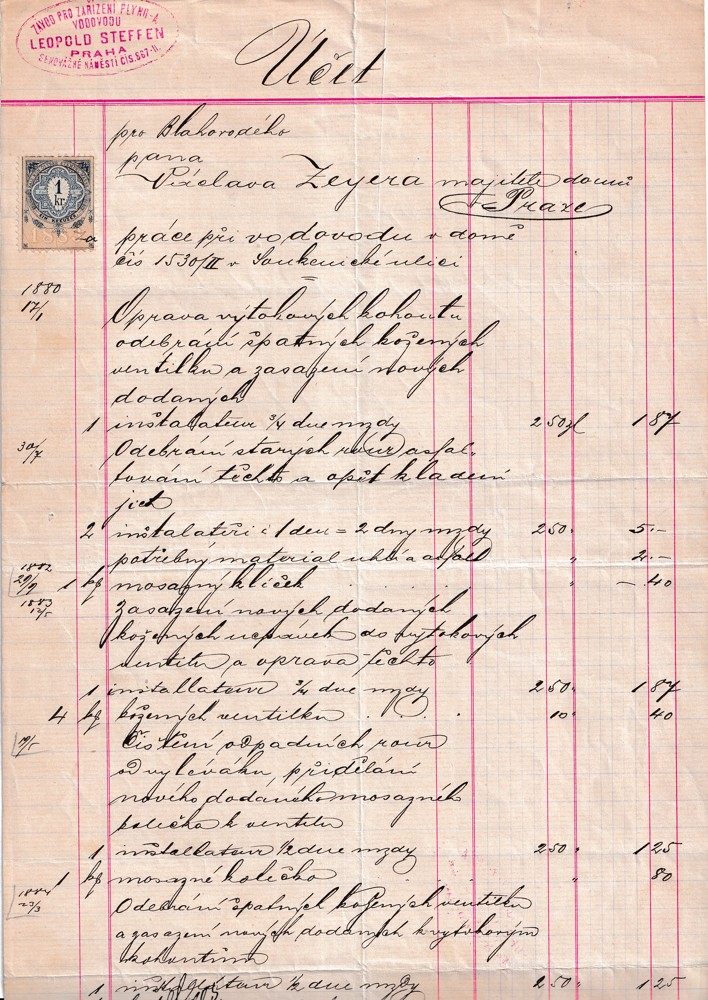 ZÁVOD PRO ZAŘÍZENÍ PLYNU A
VODOVODU
LEOPOLD STEFFEN
PRAHA
SENOVÁŽNÉ NÁMĚSTÍ ČÍS. 667-II.
Účet
pro Blahorodého
pana
Václava Zeyera majitele domů
v Praze
1
kr
za práce při vodovodu v domě
čís 1530/II v Soukenické ulici
1880
17/1 Oprava výtokových kohoutu
odebrání špatných kožených
ventilku a zasazení nových
dodaných
1 inštalateur 3/4 dne mzdy 250 zl 187
30/7 Odebrání starých rour asfal-
tování těchto a opět kladení
jich
2 inštalatéři à 1 den = 2 dny mzdy 250 " 5.-
potřebný material uhlí a asfalt " 2.-
1882
29/9 1 ks mosazný klíček " -.40
1883
12/5 Zasazení nových dodaných
kožených ucpávek do výtokových
ventilu a oprava těchto
1 installateur 3/4 dne mzdy 250 " 187
4 ks kožených ventilku 10 " 40
19/5 Čištění odpadních rour
od vyléváku, přidělání
nového dodaného mosazného
kolečka k ventilu
1 inštallateur 1/2 dne mzdy 250 " 125
1 ks mosazné kolečko " 80
1884
22/3 Odebrání špatných kožených ventilku
a zasazení nových dodaných k výtokovým
kohoutům
1 installateur 1/2 dne mzdy 250 " 125